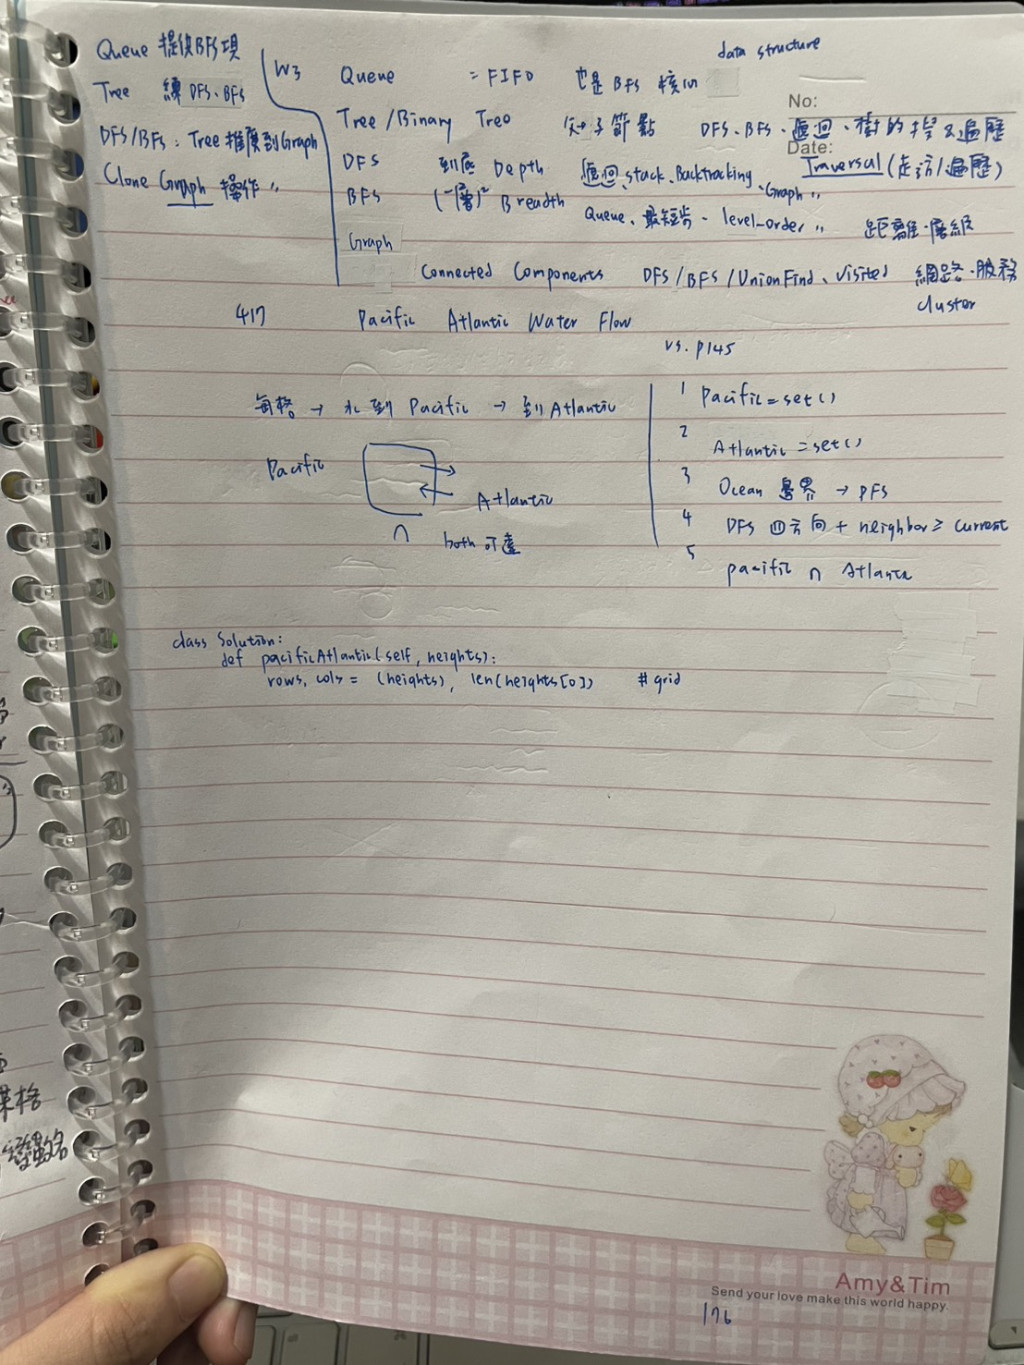 data structure
Queue 提供BFS項
Tree 練 DFS、BFS
DFS/BFS：Tree 推廣到Graph
Clone Graph 操作 〃
W3 Queue = FIFO 也是 BFS 核心
No:
Tree / Binary Tree 父子節點 DFS、BFS、遞迴、樹的 遍歷
Date:
Traversal (走訪/遍歷)
DFS 到底 Depth 遞迴、stack、Backtracking、Graph 〃
BFS (一層) Breadth Queue、最短步、level-order 〃 距離、層級
Graph
Connected Components DFS / BFS / Union Find、visited 網路、服務
cluster
417 Pacific Atlantic Water Flow
vs. P145
每格 → 水到 Pacific → 到 Atlantic
Pacific
Atlantic
∩ both 可達
1 Pacific = set()
2 Atlantic = set()
3 Ocean 邊界 → DFS
4 DFS 四方向 + neighbor ≥ current
5 pacific ∩ Atlantic
class Solution:
def pacificAtlantic(self, heights):
rows, cols = (heights), len(heights[0]) # grid
某格
變數名
Amy&Tim
Send your love make this world happy.
176